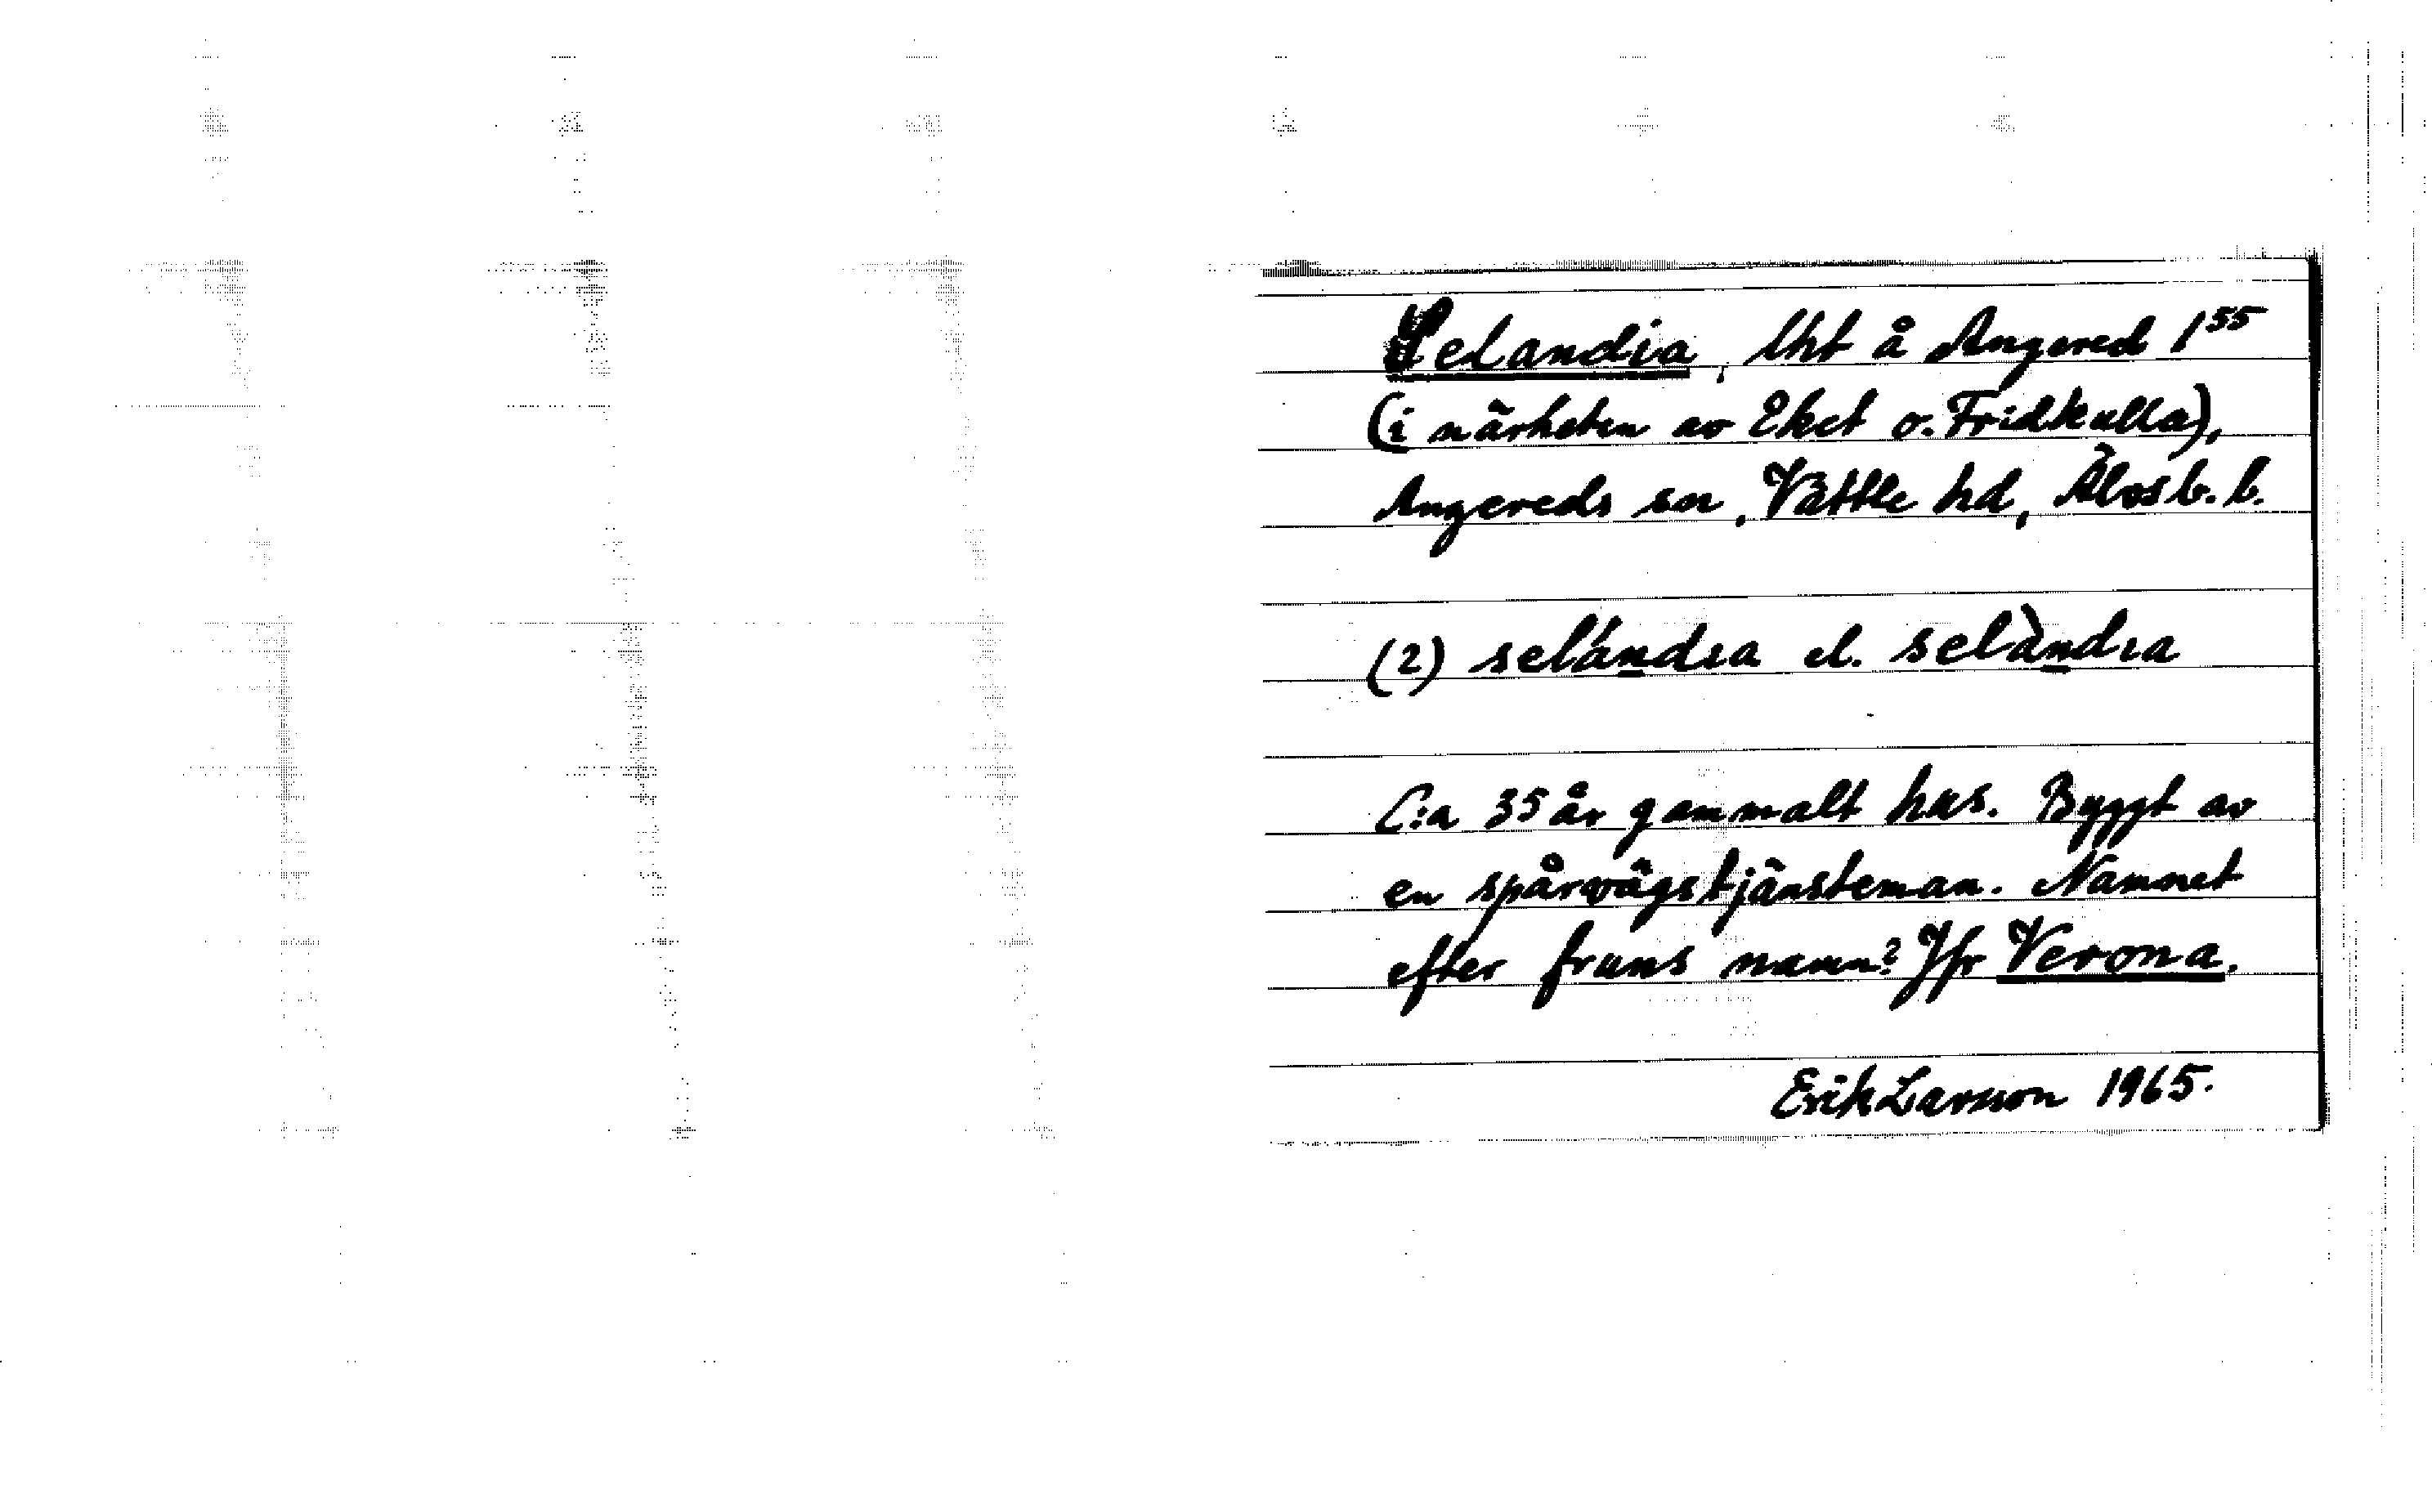 Selandia, lht å Angered 1⁵⁵
(i närheten av Eket o. Fridkulla),
Angereds sn, Vättle hd, Älvsb. l.
(2) selándıa el. selàndıa
C:a 35 år gammalt hus. Byggt av
en spårvägstjänsteman. Namnet
efter fruns namn? Jfr Verona.
Erik Larsson 1965.